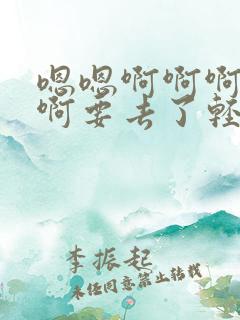 嗯嗯啊啊啊
啊要去了轻
李振起
未经同意禁止转载